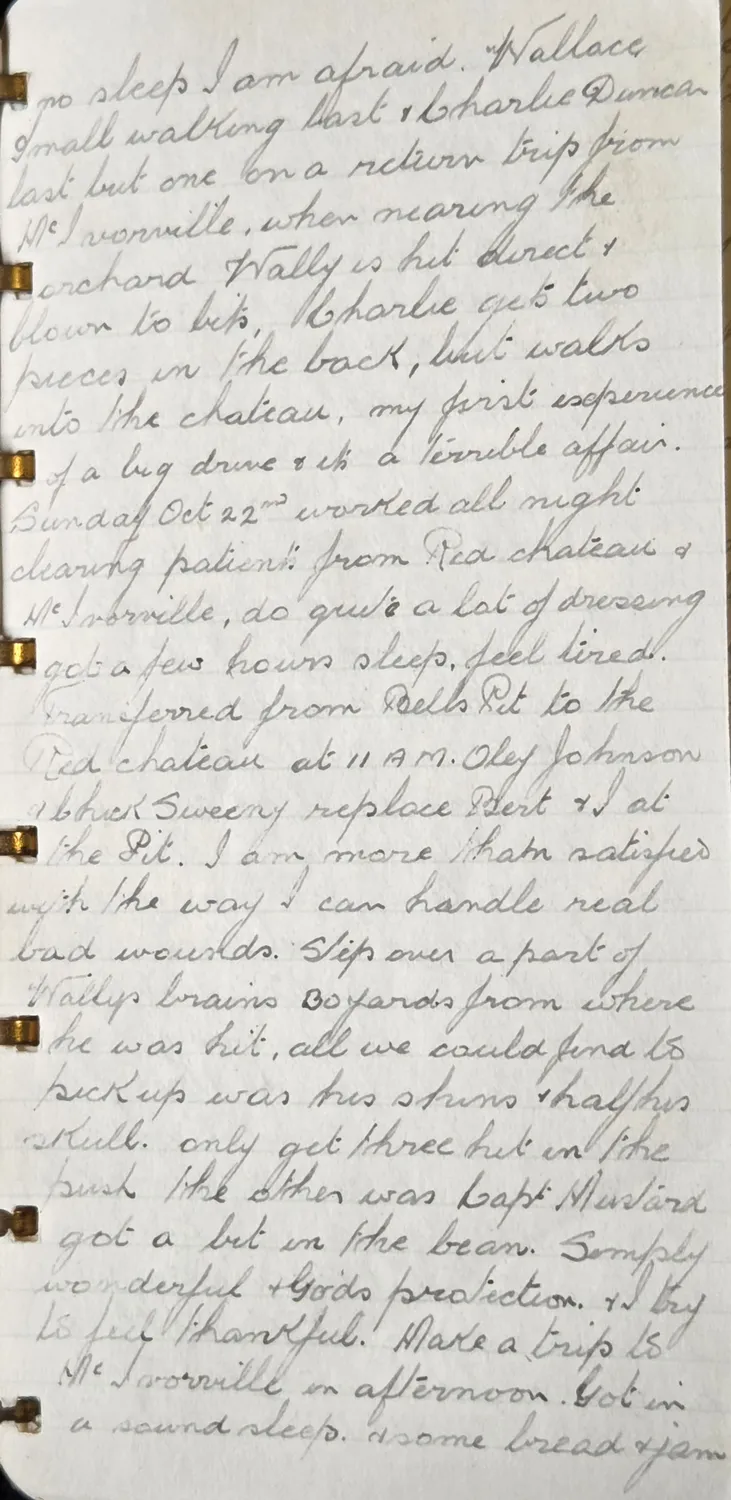 no sleep I am afraid. Wallace
Small walking last & Charlie Duncan
last but one on a return trip from
McIvorville, when nearing the
orchard Wally is hit direct &
blown to bits, Charlie gets two
pieces in the back, but walks
into the chateau, my first experience
of a big drive & its a terrible affair.
Sunday Oct 22nd worked all night
clearing patients from Red chateau &
McIvorville, do quite a lot of dressing
got a few hours sleep, feel tired.
Transferred from Bells Pit to the
Red chateau at 11 A M. Oley Johnson
& Chick Sweeny replace Bert & I at
the Pit. I am more than satisfied
with the way I can handle real
bad wounds. Slip over a part of
Wallys brains 30 yards from where
he was hit, all we could find to
pick up was his shins & half his
skull. only get three hit in the
push the other was Capt Mustard
got a bit in the bean. Simply
wonderful & Gods protection. & I try
to feel thankful. Make a trip to
McIvorville in afternoon. Got in
a sound sleep. & some bread & jam